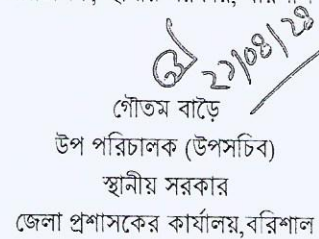 ২১/০৪/২৪
গৌতম বাড়ৈ
উপ পরিচালক (উপসচিব)
স্থানীয় সরকার
জেলা প্রশাসকের কার্যালয়,বরিশাল